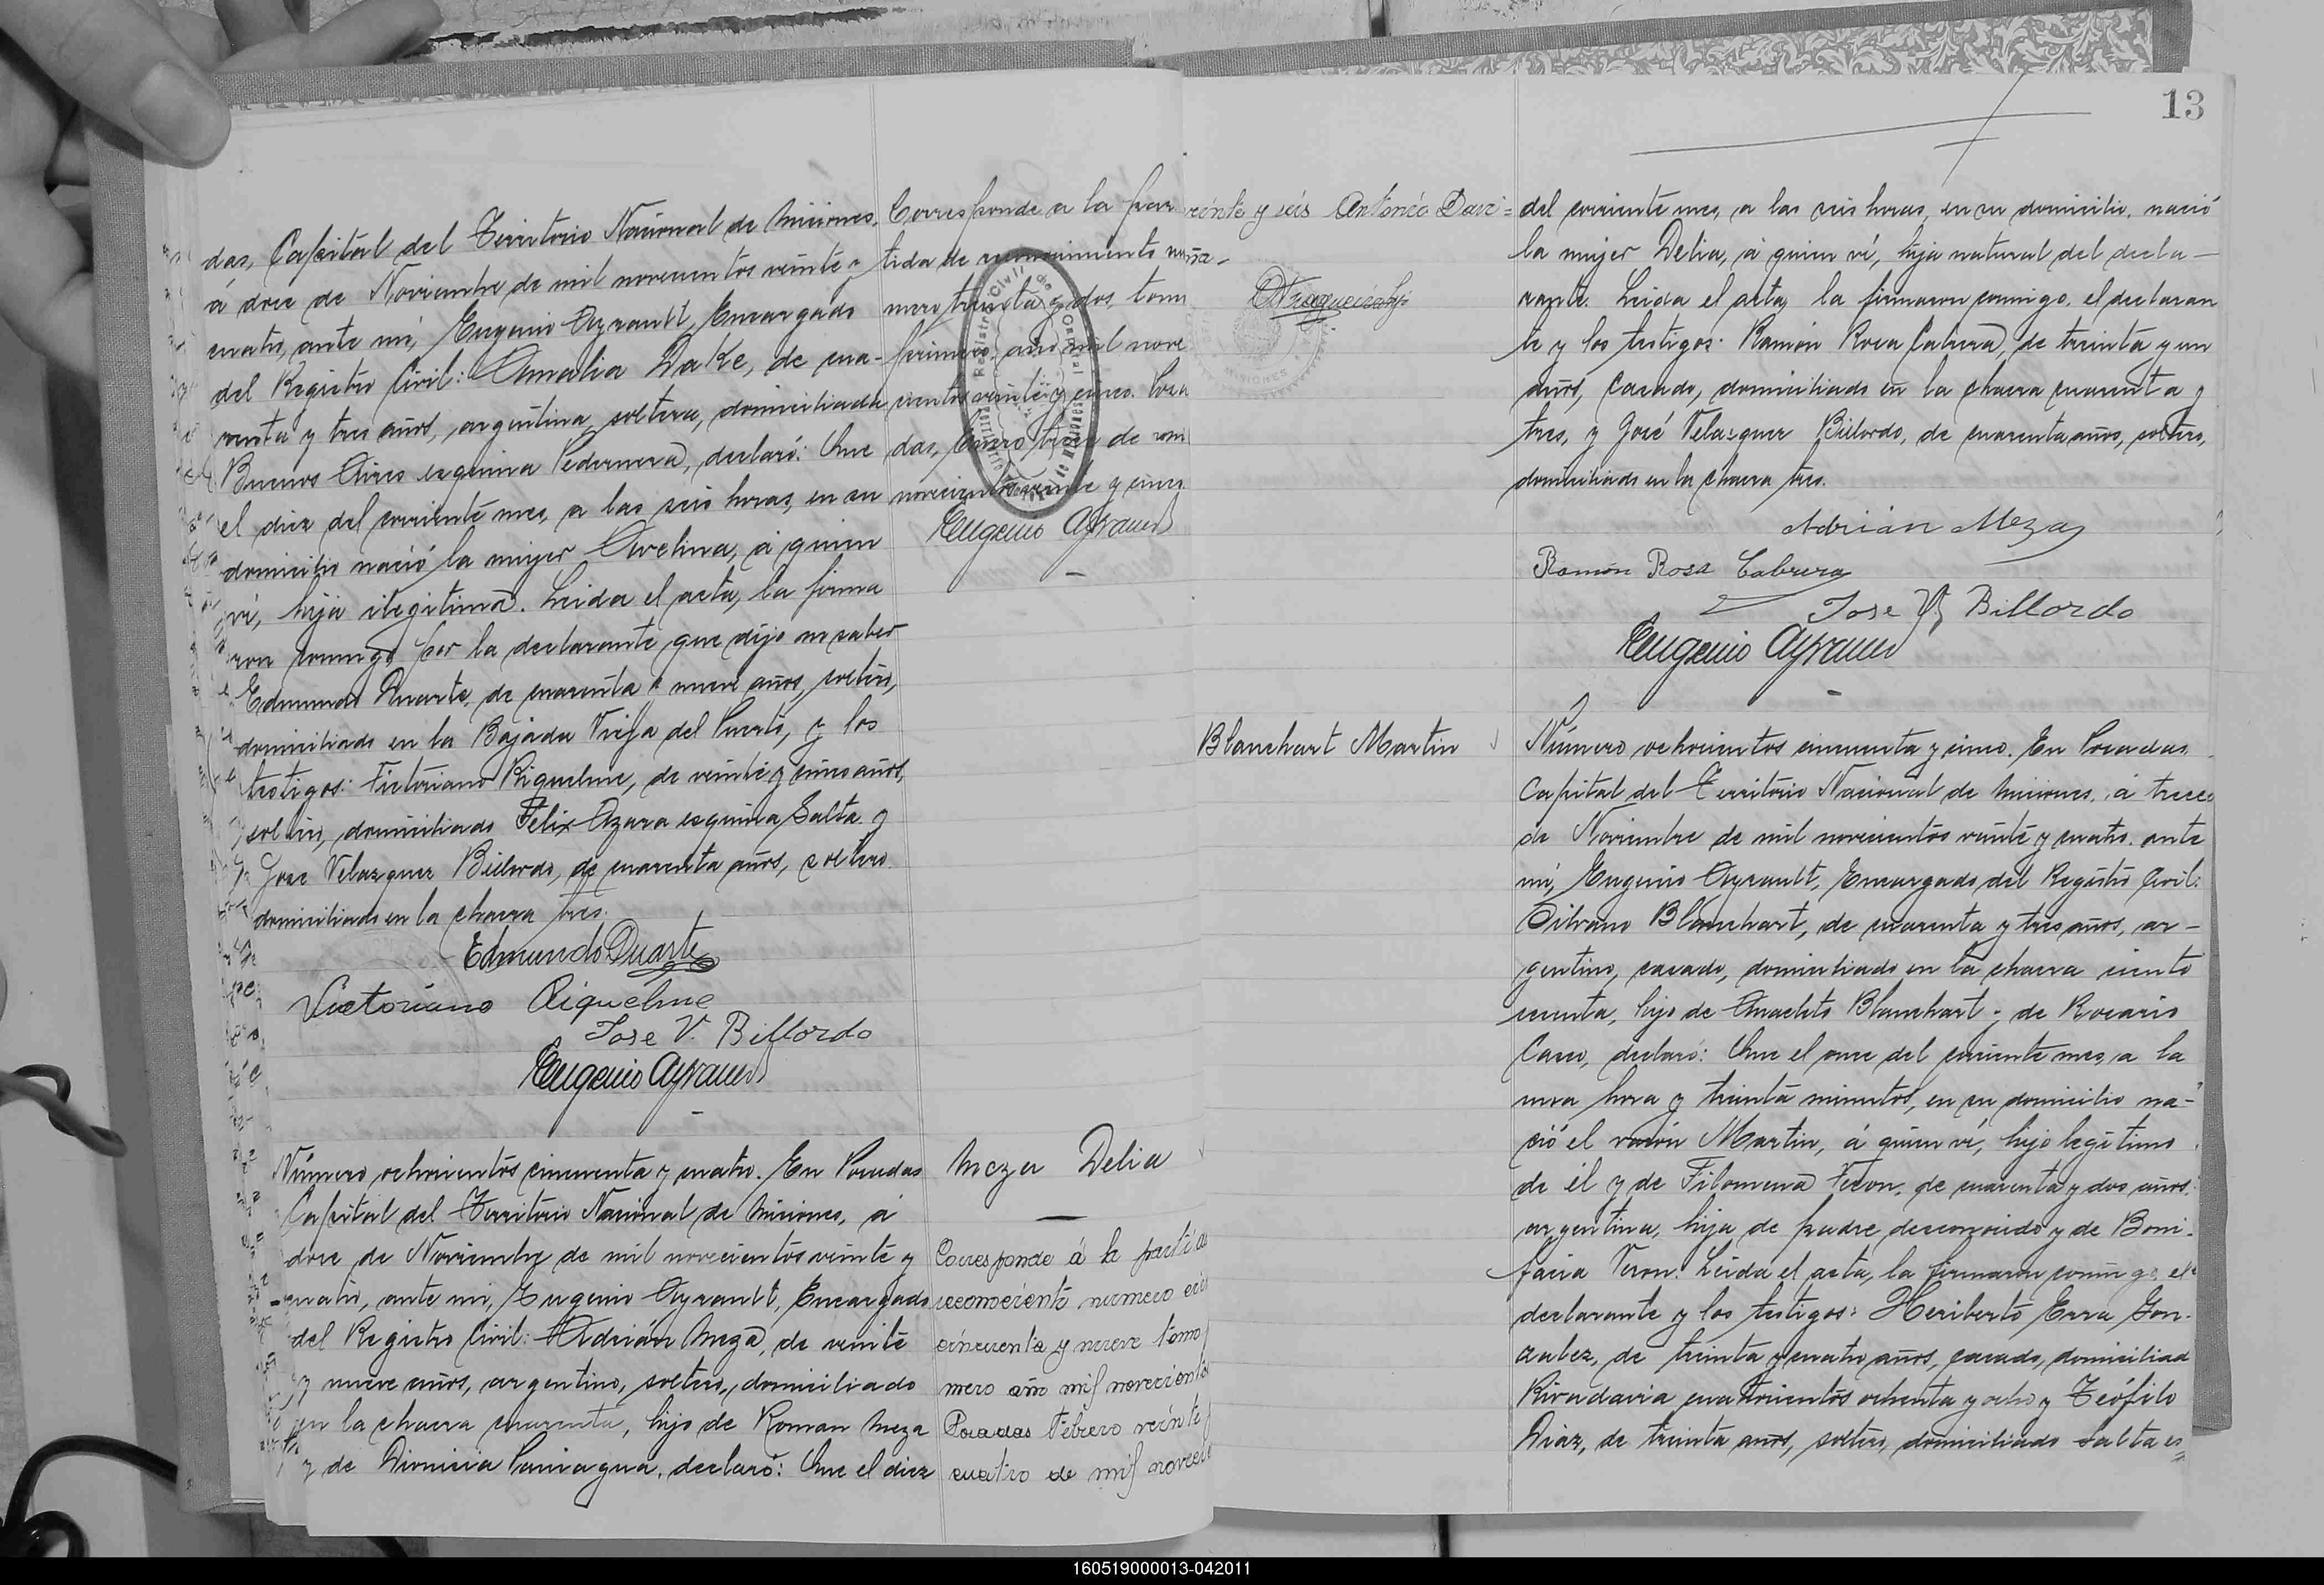 das, Capital del Territorio Nacional de Misiones,
á doce de Noviembre de mil novecientos veinte y
cuatro, ante mí, Eugenio Ayrault, Encargado
del Registro Civil: Amalia Dake, de cua-
renta y tres años, argentina, soltera, domiciliada
Buenos Aires esquina Pedernera, declaró: Que
el diez del corriente mes, a las seis horas, en su
domicilio nació la mujer Avelina, á quien
ví, hija ilegitima. Leida el acta, la firma
ron conmigo por la declarante que dijo no saber
Edmundo Duarte, de cuarenta y nueve años, soltero,
domiciliado en la Bajada Vieja del Puerto, y los
testigos: Victoriano Riquelme, de veinte y cinco años,
soltero, domiciliado Felix Azara esquina Salta y
Jose Velazquez Billordo, de cuarenta años, soltero
domiciliado en la chacra tres.
Edmundo Duarte
Victoriano Riquelme
Jose V. Billordo
Eugenio Ayrault
Corresponde a la par
tida de reconocimiento nu
mero treinta y dos, tomo
primero, año mil nove
cientos veinte y cinco. Posa
das, Enero trece de mil
novecientos veinte y cinco
Eugenio Ayrault
Número ochocientos cincuenta y cuatro. En Posadas
Capital del Territorio Nacional de Misiones, á
doce de Noviembre de mil novecientos veinte y
cuatro, ante mi, Eugenio Ayrault, Encargado
del Registro Civil: Adrián Meza, de veinte
y nueve años, argentino, soltero, domiciliado
en la chacra cuarenta, hijo de Roman Meza
y de Dionicia Paniagua, declaró: Que el diez
Meza Delia
Corresponde á la partida
reconocients numero
cincuenta y nueve tomo
mero año mil novecientos
Posadas Febrero veinte
cuatro de mil novecie
veinte y seis Antonio
13
del corriente mes, a las seis horas, en su domicilio, nació
la mujer Delia, á quien ví, hija natural del decla-
rante. Leida el acta, la firmaron conmigo, el declaran
te y los testigos: Ramón Rosa Cabrera, de treinta y un
años, casado, domiciliado en la chacra cuarenta y
tres, y José Velazquez Billordo, de cuarenta años, soltero,
domiciliado en la chacra tres.
Adrián Meza
Ramón Rosa Cabrera
Jose V. Billordo
Eugenio Ayrault
Blanchart Martin
Número ochocientos cincuenta y cinco. En Posadas,
Capital del Territorio Nacional de Misiones, á trece
de Noviembre de mil novecientos veinte y cuatro, ante
mí, Eugenio Ayrault, Encargado del Registro Civil:
Silvano Blanchart, de cuarenta y tres años, ar-
gentino, casado, domiciliado en la chacra ciento
hijo de Anacleto Blanchart y de Rosario
declaró: Que el once del corriente mes, a la
una hora y treinta minutos, en su domicilio na-
ció el varón Martin, á quien ví, hijo legítimo
de él y de Filomena Veron, de cuarenta y dos años,
argentina, hija de padre desconocido y de Boni-
facia Veron. Leida el acta, la firmaron conmigo, el
declarante y los testigos: Heriberto Erra Gon-
zalez, de treinta y cuatro años, casado, domiciliado
Rivadavia cuatrocientos ochenta y ocho y Teófilo
Diaz, de treinta años, soltero, domiciliado Salta es=
160519000013-042011